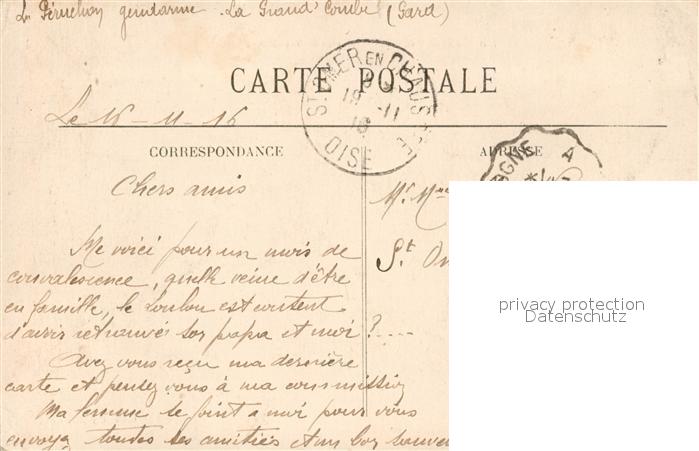 L. Péruchon gendarme. La Grand' Combe (Gard)
CARTE POSTALE
ST OMER EN CHAUSSEE
19 -11
16
OISE
Le 16-11-16
CORRESPONDANCE
ADRESSE
OGNE A
Chers amis
Mr Mme
St Om
Me voici pour un mois de
convalescence, quelle veine d'être
en famille, le Loulou est content
d'avoir retrouvé son papa et moi ?....
Avez vous reçu ma dernière
carte et pensez vous à ma commission
Ma femme se joint a moi pour vous
envoyer toutes ses amitiés et un bon souven
privacy protection
Datenschutz